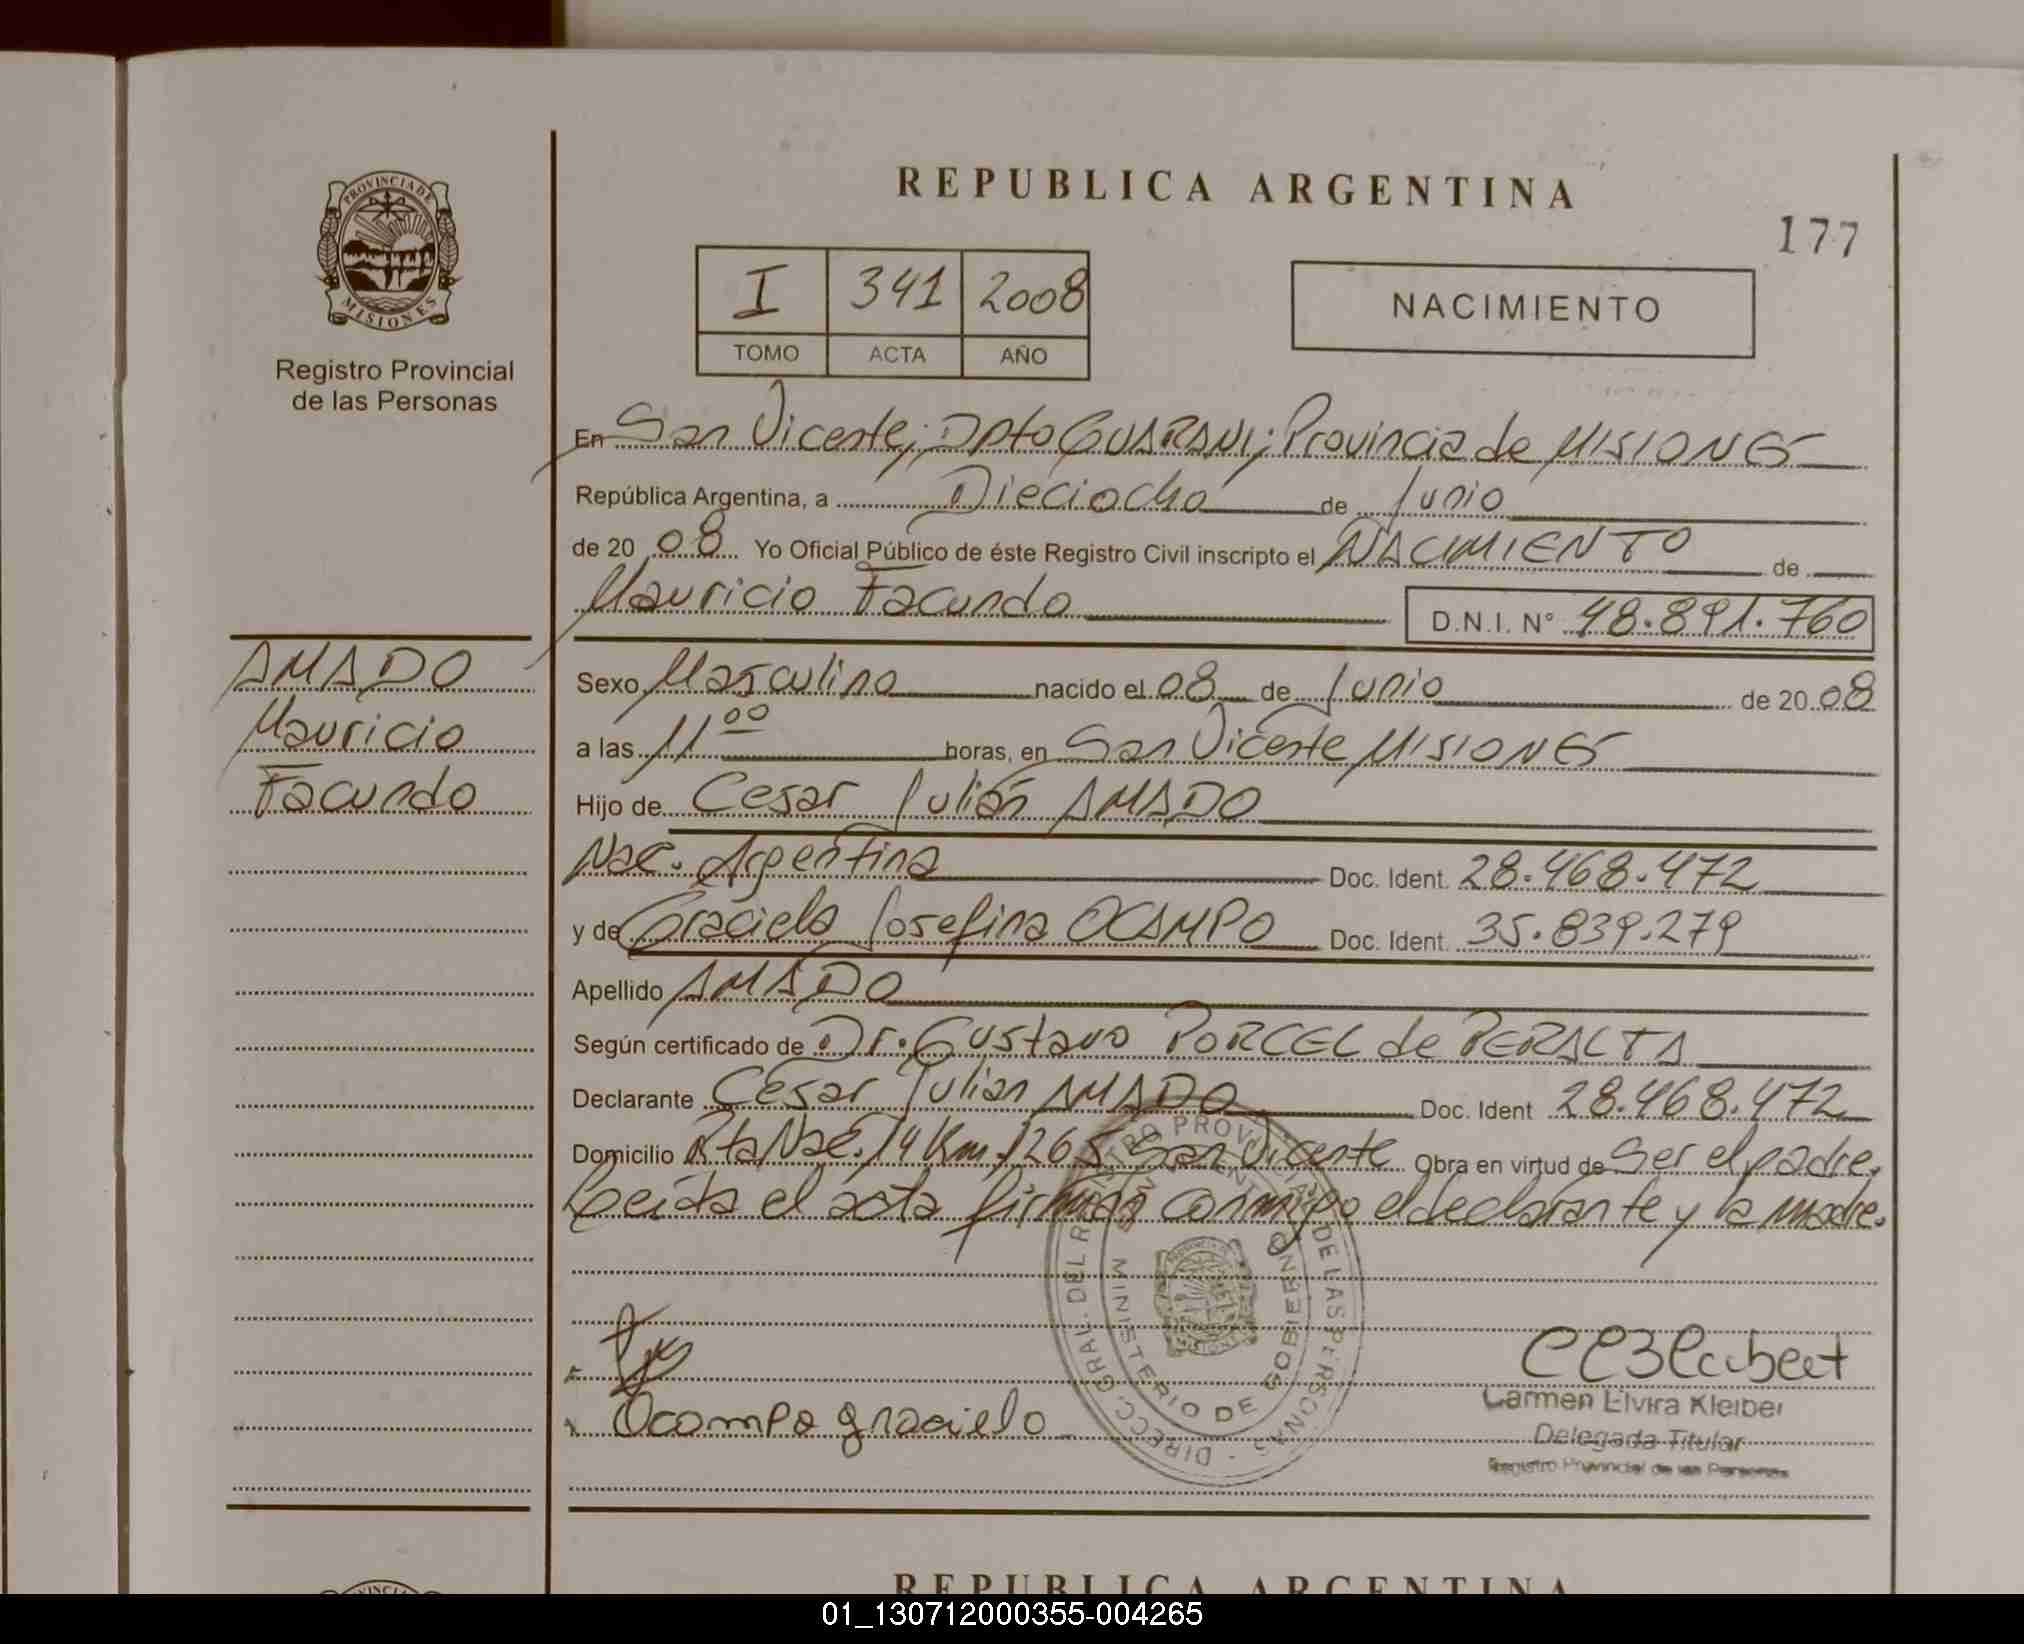 REPUBLICA ARGENTINA
177
PROVINCIA DE MISIONES
Registro Provincial
de las Personas
I 341 2008
TOMO ACTA AÑO
NACIMIENTO
En San Vicente; Dpto GUARANI; Provincia de MISIONES
República Argentina, a Dieciocho de Junio
de 20 08 Yo Oficial Público de éste Registro Civil inscripto el NACIMIENTO de
Mauricio Facundo D.N.I. N° 48.891.760
AMADO
Mauricio
Facundo
Sexo Masculino nacido el 08 de Junio de 20 08
a las 11 00 horas, en San Vicente MISIONES
Hijo de Cesar Julián AMADO
Nac. Argentina Doc. Ident. 28.468.472
y de Graciela Josefina OCAMPO Doc. Ident. 35.839.279
Apellido AMADO
Según certificado de Dr. Gustavo PORCEL de PERALTA
Declarante Cesar Julian AMADO Doc. Ident 28.468.472
Domicilio Rta Nac. 14 Km. 1265 San Vicente Obra en virtud de Ser el padre.
Leida el acta firman conmigo el declarante y la madre.
DIRECC. GRAL. DEL REGISTRO PROVINCIAL DE LAS PERSONAS
MINISTERIO DE GOBIERNO
x
x Ocampo graciela
Carmen Elvira Kleiber
Delegada Titular
Registro Provincial de las Personas
REPUBLICA ARGENTINA
01_130712000355-004265